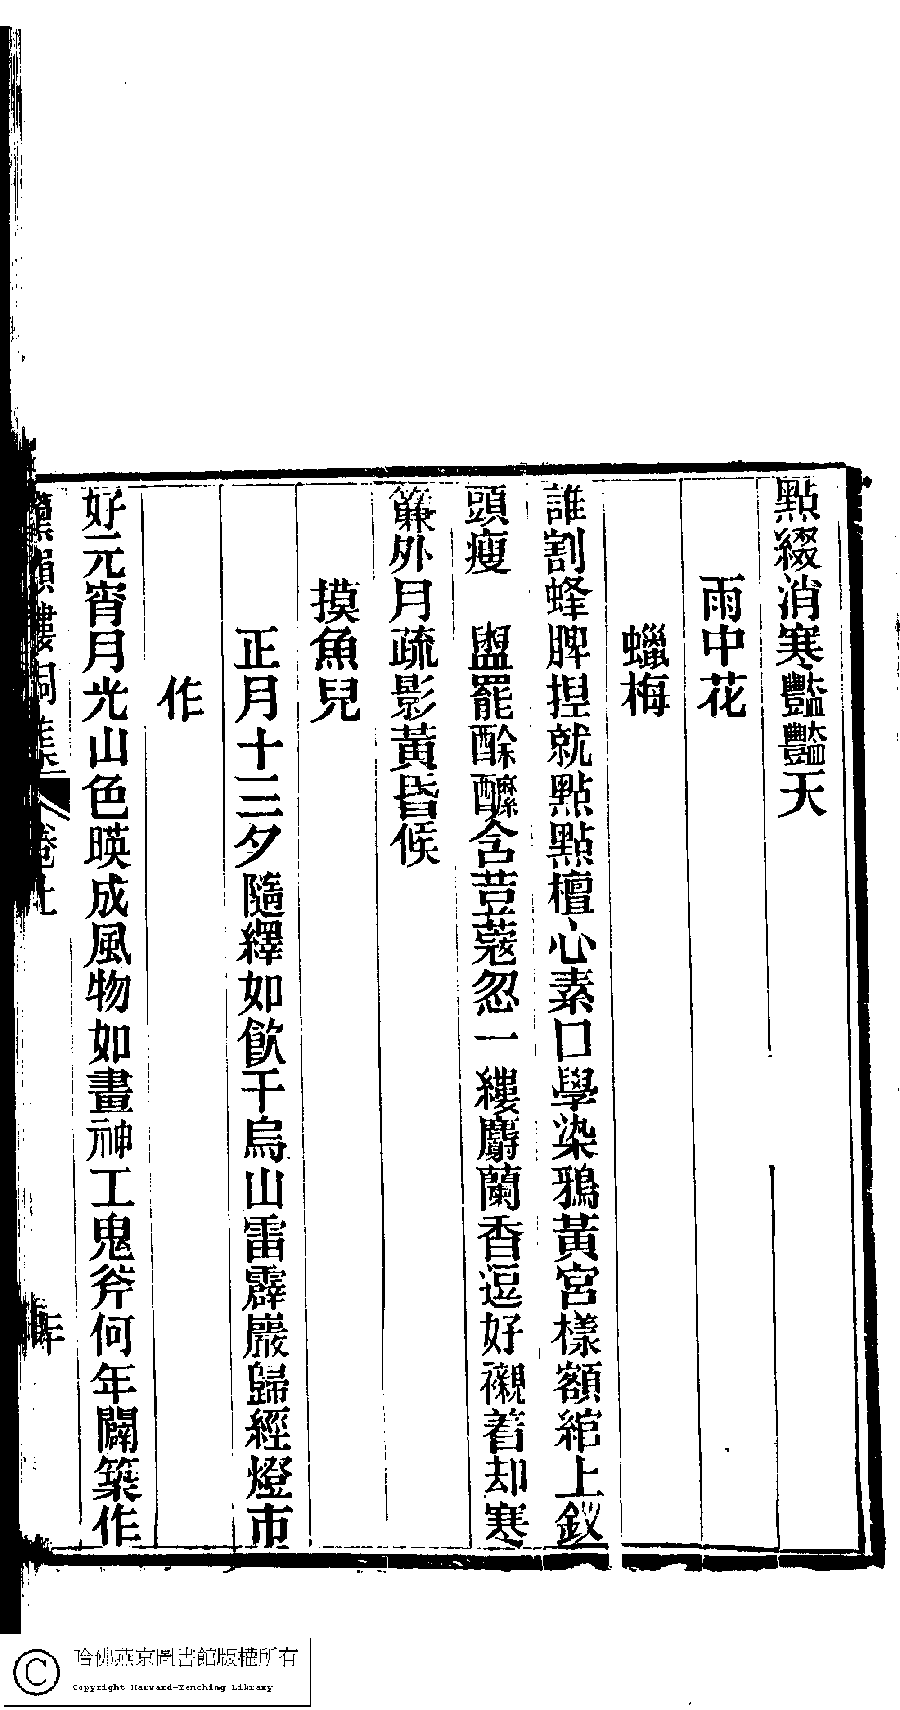 點綴消寒豔豔天
雨中花
蠟梅
誰割蜂脾揑就點點檀心素口學染鴉黃宮樣額綰上釵
頭瘦　盥罷酴醾含荳蔻忽一縷麝蘭香逗好襯着却寒
簾外月疏影黃昏候
摸魚兒
正月十三夕隨繹如飲于烏山雷霹巖歸經燈市
作
好元宵月光山色暎成風物如畫神工鬼斧何年闢築作
樓詞集 卷上
哈佛燕京圖書館版權所有
Copyright Harvard-Yenching Library